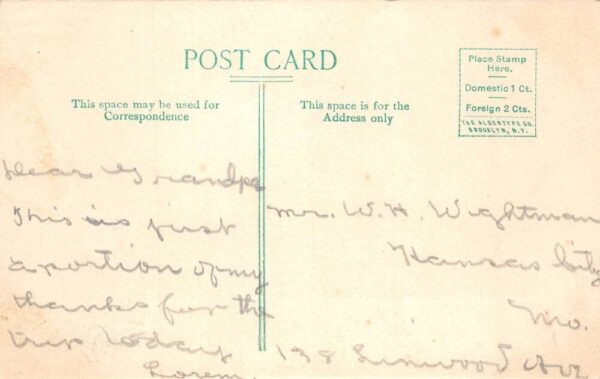 POST CARD
Place Stamp
Here.
Domestic 1 Ct.
Foreign 2 Cts.
THE ALBERTYPE CO.
BROOKLYN, N.Y.
This space may be used for
Correspondence
This space is for the
Address only
Dear Grandpa
This is just
a portion of my
thanks for the
trip today
Lorem
Mr. W. H. Wightman
Kansas City
Mo.
138 Linwood Ave